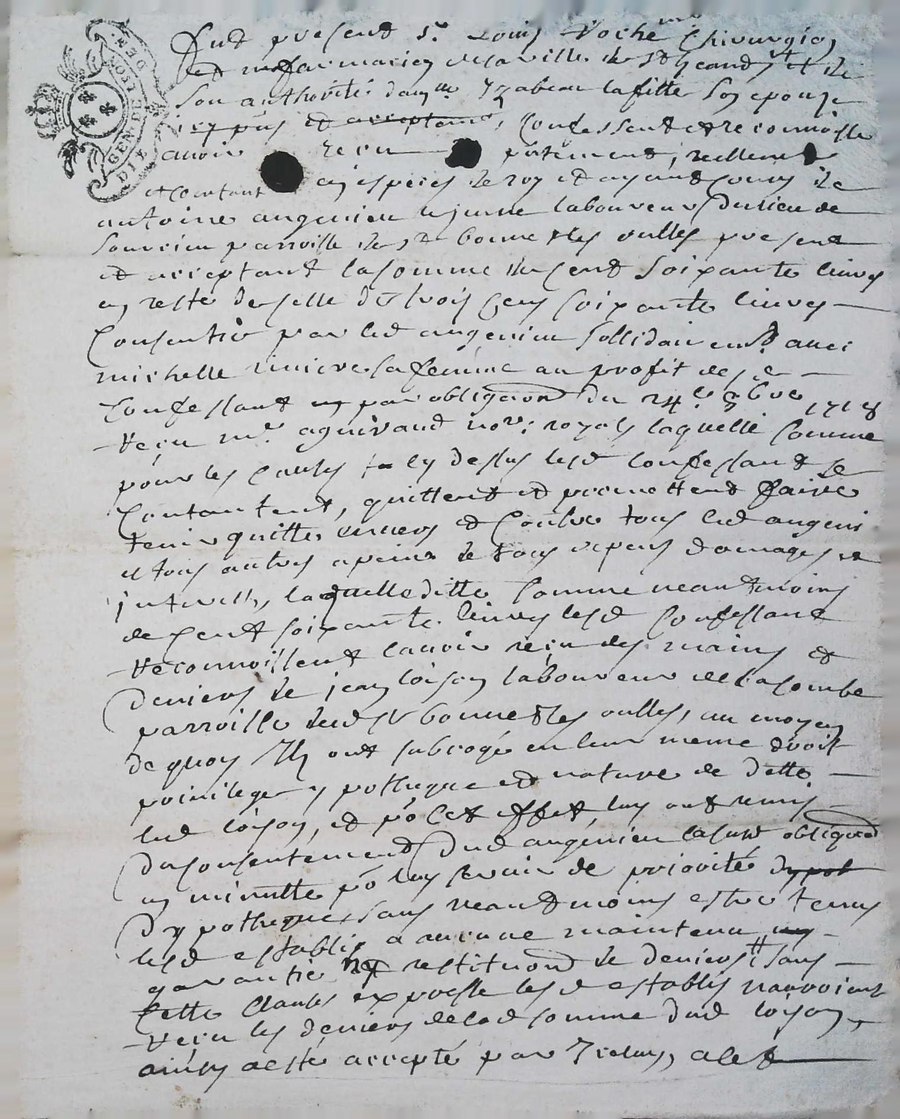 GEN DE LION
DIX DEN
Fut présent Sr Louis Voche me Chirurgien
et de
son authorité damlle Yzabeau lafitte son epouze
icy pnts et acceptants, Confessent et reconnoisse
avoir reçu réellemt
et Contant en especes de roy et ayant Cours de
antoine angenieu le jeune laboureur du lieu de
parroisse de St bonnet les oulles present
et acceptant la somme de Cent soixante livres
en reste de Celle de trois Cens soixante livres
Consentie par led angenieu sollidairemt avec
michelle sa femme au profit desd
Confessant par obligaon du 24e 1718
reçu me not: royal, laquelle somme
pour les Causes Cy dessus lesd Confessant se
Contantent, quittent et promettent faire
tenir quitte envers et Contre tous led angeni
et tous autres a peine de tous depens domages et
interests, laquelleditte somme neantmoins
de Cent soixante livres lesd Confessant
reconnoissent l'avoir reçu des mains et
deniers de jean loison laboureur de la Combe
parroisse dud St bonnet les oulles, au moyen
de quoy Ils ont subrogé en leur meme droit
privilege ypotheque et nature de dette
led loison, et pr Cet effet, luy ont remis
du Consentement dud angenieu la susd obligaon
en minutte pr luy servir de priorité dypot
dypotheque, sans neantmoins estre tenus
lesd establis a aucune maintenue
garantie ny restituon de deniers sans
Cette Clause expresse lesd establis nauroient
reçu les deniers de lad somme dud loison,
ainsy a esté accepté par Iceluy,